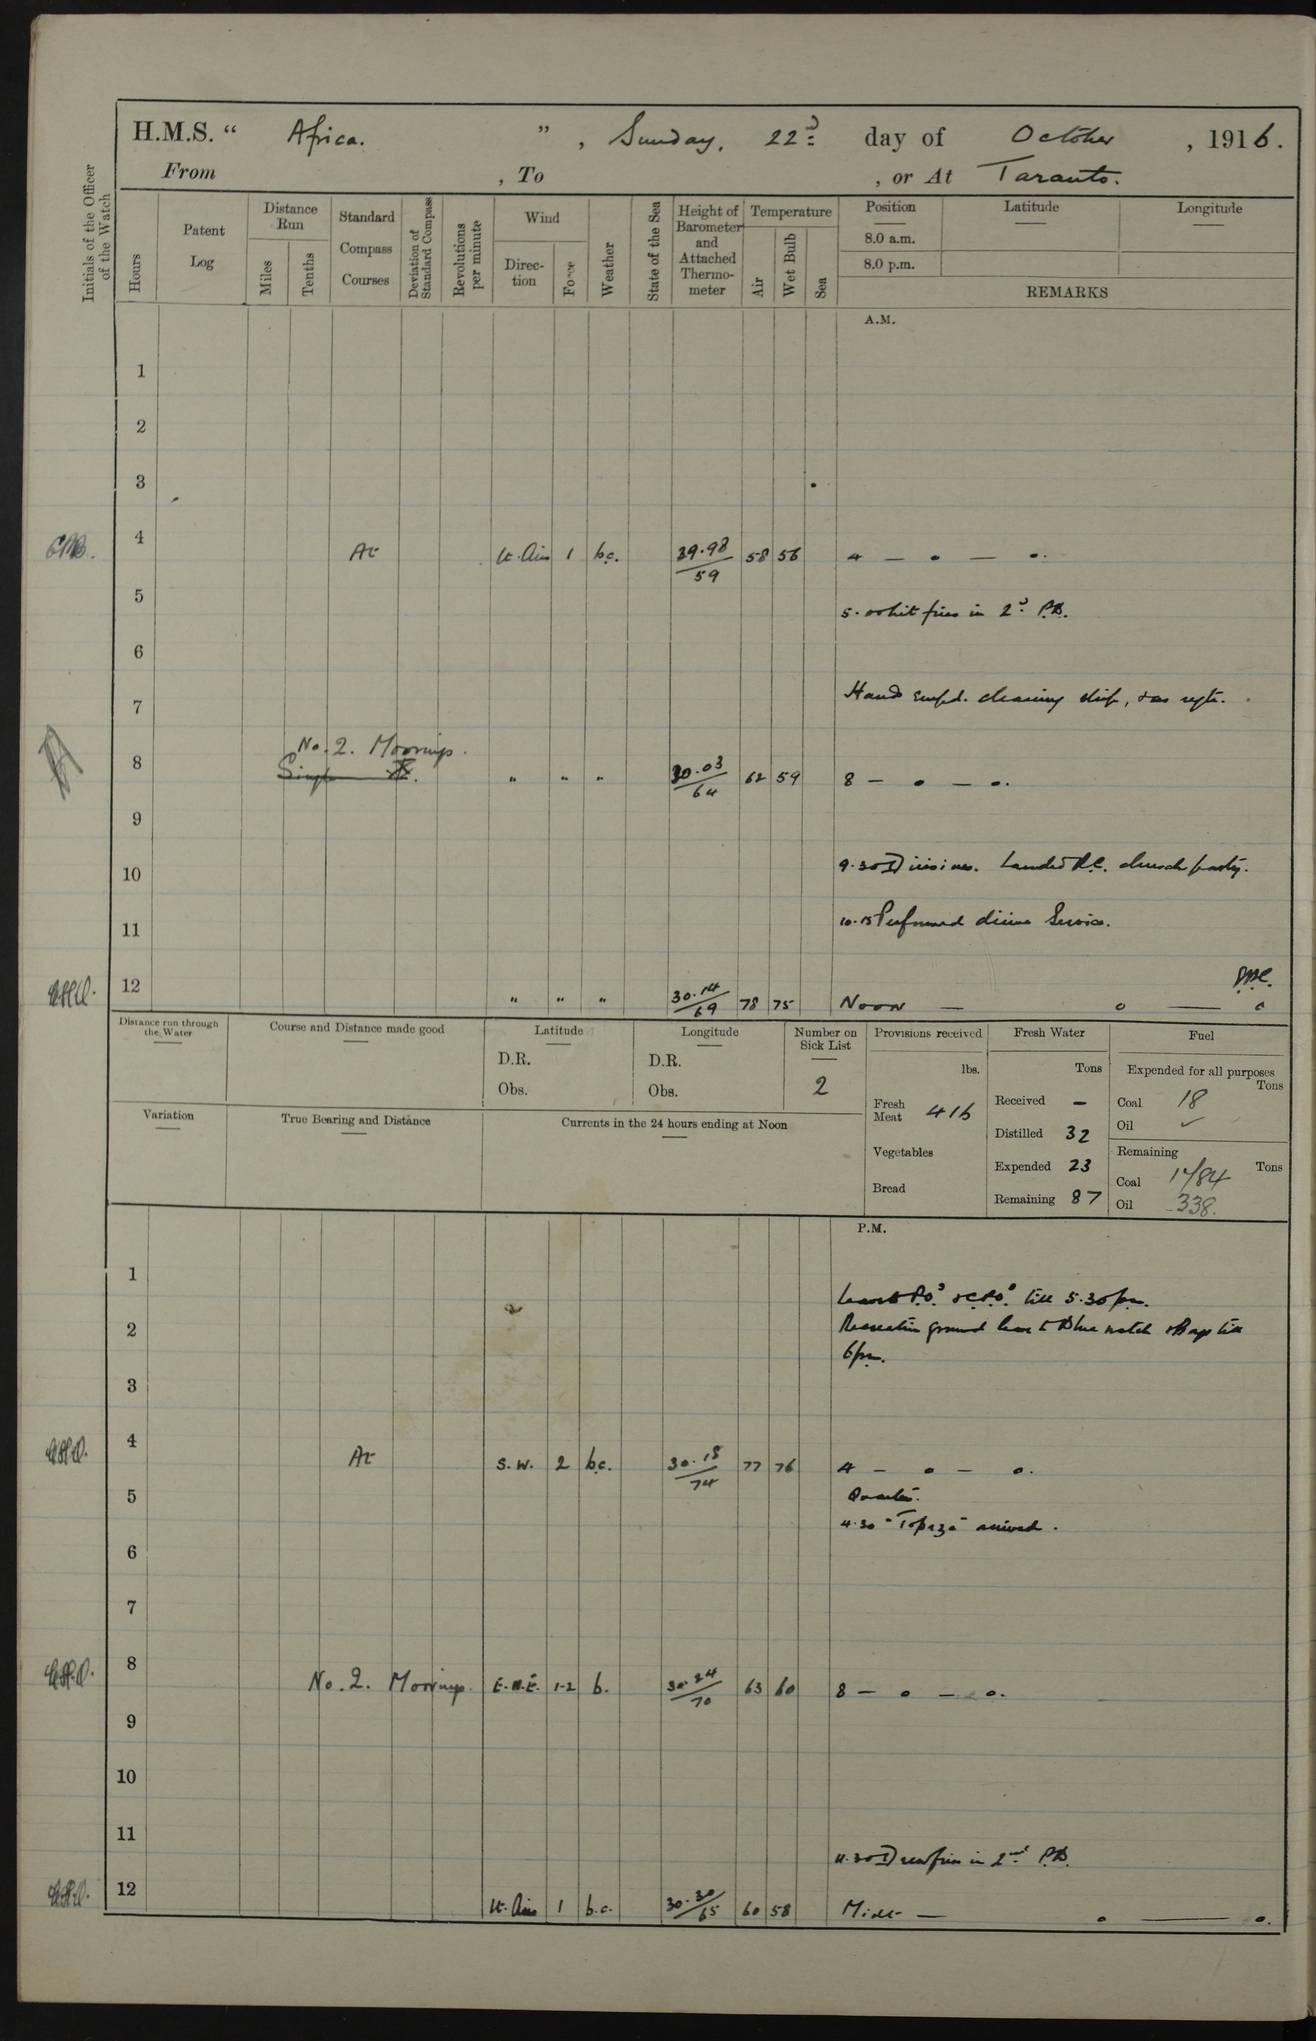 H.M.S. “ Africa. ” , Sunday, 22nd day of October , 1916.
From , To , or At Taranto.
Initials of the Officer of the Watch
Hours
Patent Log
Distance Run
Miles
Tenths
Standard Compass Courses
Deviation of Standard Compass
Revolutions per minute
Wind
Direction
Force
Weather
State of the Sea
Height of Barometer and Attached Thermometer
Temperature
Air
Wet Bulb
Sea
Position
8.0 a.m.
8.0 p.m.
Latitude
Longitude
REMARKS
A.M.
1
2
3
4 At Lt. Airs 1 b.c. 29.98/59 58 56 4 — o — o.
5 5.00 hit fires in 2nd P.B.
6
7 Hands empd. cleaning ship, & as reqte.
No. 2. Moorings.
8 Single " " " 30.03/64 62 59 8 — o — o.
9
10 9.30 Divisions. Landed R.C. church party.
11 10.15 Performed divine Service.
12 " " " 30.14/69 78 75 Noon — o — o
Distance run through the Water
Course and Distance made good
Latitude
D.R.
Obs.
Longitude
D.R.
Obs.
Number on Sick List
2
Provisions received
lbs.
Fresh Meat 416
Vegetables
Bread
Fresh Water
Tons
Received —
Distilled 32
Expended 23
Remaining 87
Fuel
Expended for all purposes
Tons
Coal 18
Oil ✓
Remaining
Tons
Coal 1784
Oil 338.
Variation
True Bearing and Distance
Currents in the 24 hours ending at Noon
P.M.
1
Leave to P.Os & C.P.Os till 5.30 pm.
2 Recreation ground leave to Blue watch & Boys till
6 pm.
3
4 At S.W. 2 b.c. 30.18/74 77 76 4 — o — o.
5 Quarters.
4.30 "Topaze" arrived.
6
7
8 No. 2. Moorings. E.N.E. 1-2 b. 30.24/70 63 60 8 — o — o.
9
10
11 11.30 Drew fires in 2nd P.B.
12 Lt. Airs 1 b.c. 30.30/65 60 58 Midt — o — o.